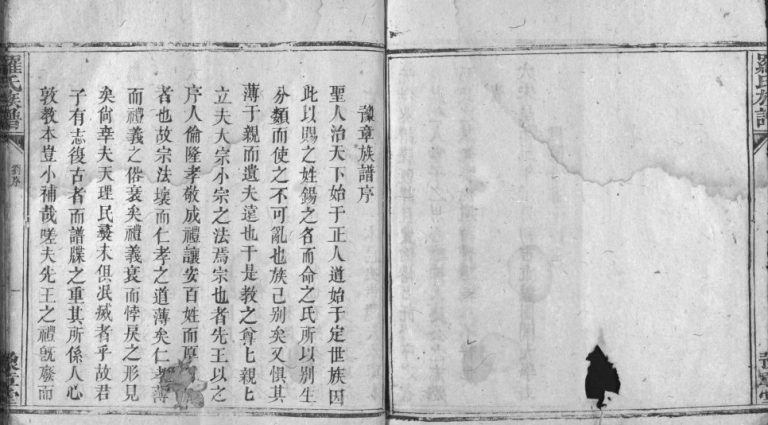 羅氏族譜
豫章族譜序
聖人治天下始于正人道始于定世族因
此以賜之姓錫之名而命之氏所以別生
分類而使之不可亂也族已别矣又惧其
薄于親而遺夫遠也于是教之尊匕親匕
立夫大宗小宗之法焉宗也者先王以之
序人倫隆孝敬成禮讓安百姓而厚
者也故宗法壞而仁孝之道薄矣仁孝薄
而禮義之俗衰矣禮義衰而悖戾之形見
矣尙幸夫天理民彛未俱泯滅者乎故君
子有志復古者而譜牒之重其所係人心
敦教本豈小補哉嗟夫先王之禮旣廢而
羅氏族譜
劉序
一
豫章堂